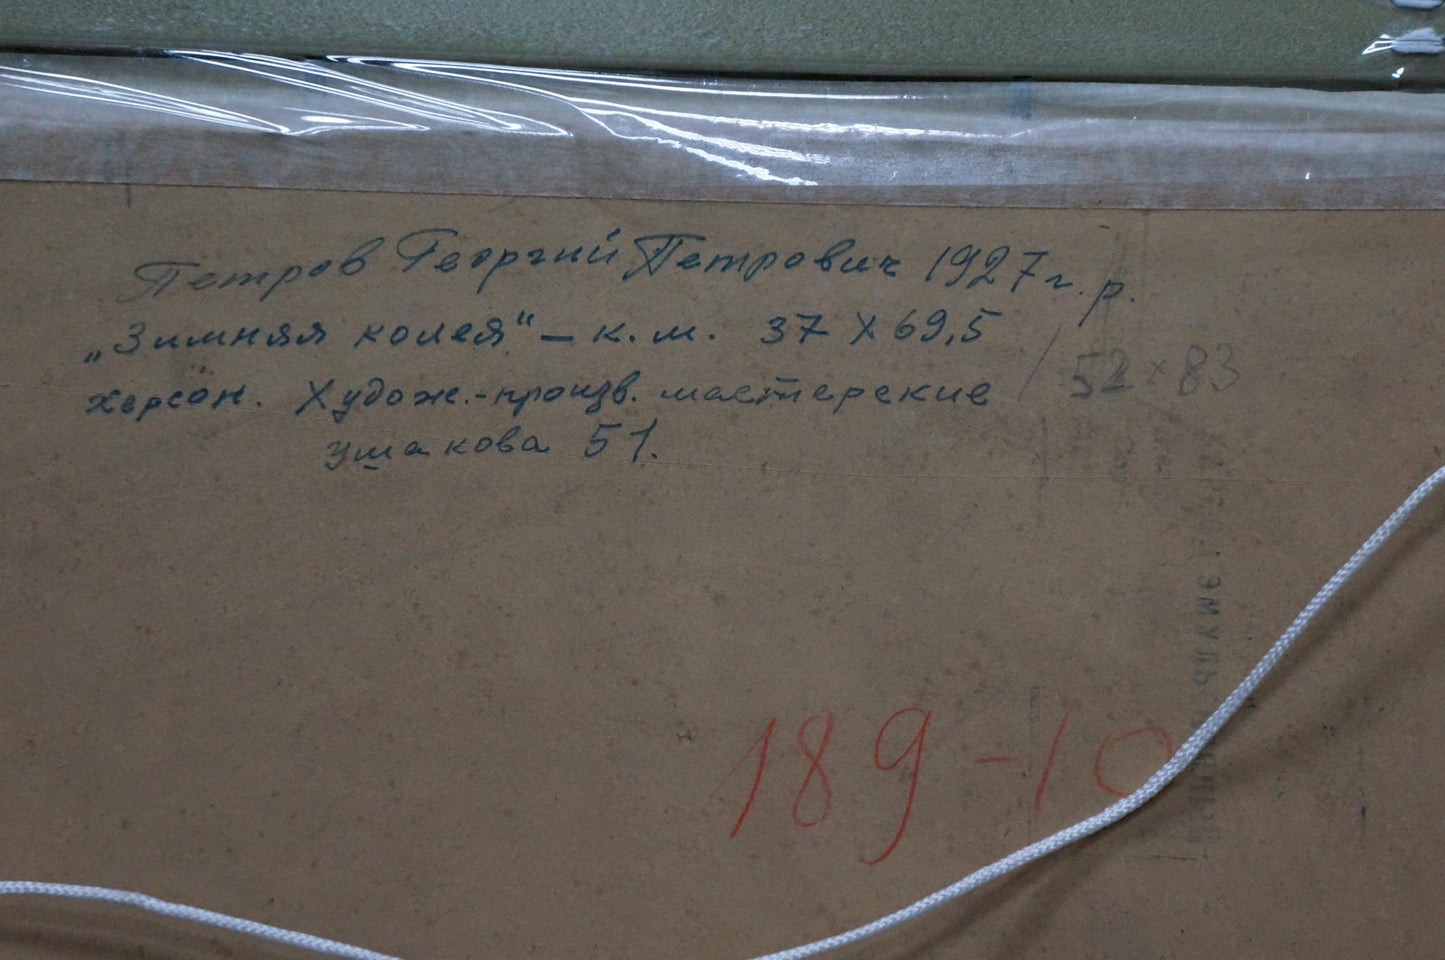 Петров Георгий Петрович 1927 г. р.
„Зимняя колея“ – к. м. 37 X 69,5
/ 52 x 83
Херсон. Худож.-произв. мастерские
Ушакова 51.
189-10